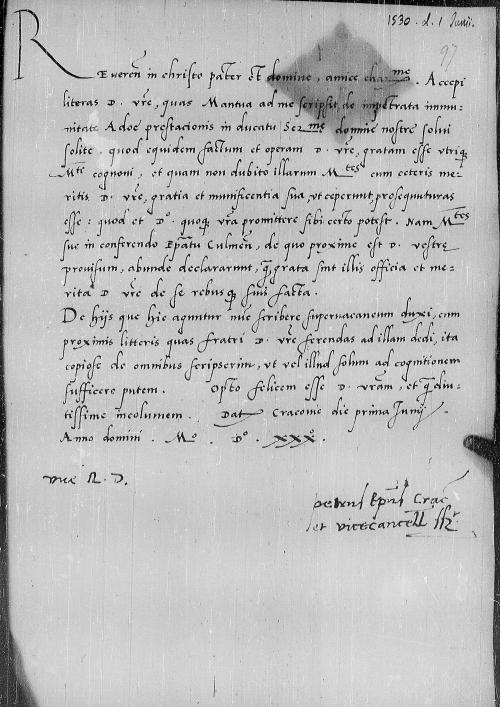 1530. d. 1 Junii.
97
REveren̄ in christo pater et domine, amice charme. Accepi
literas D. vrē, quas Mantua ad me scripsit, de impetrata immu-
nitate Adoe prestacionis in ducatu Serme domine nostre solui
solite. quod equidem factum et operam D. vrē, gratam esse vtriq
Mti cognoui, et quam non dubito illarum Mtes cum ceteris me-
ritis D. vrē, gratia et munificentia sua, vt ceperunt, prosequuturas
esse: quod et Do. quoq vrā promittere sibi certo potest. Nam Mtes
sue in conferendo Epātu Culmen̄, de quo proxime est D. vestrę
prouisum, abunde declararunt, q̄ grata sint illis officia et me-
rita D vrē de se rebusq suis facta.
De hijs que hic aguntur nūc scribere superuacaneum duxi, cum
proximis litteris quas fratri D. vrē ferendas ad illam dedi, ita
copiose de omnibus scripserim, vt vel illud solum ad cognitionem
sufficere putem. Opto felicem esse D. vram, et q̄ diu-
tissime incolumem. Dat Cracouie die prima Junij.
Anno domini. Mo. Do. XXXo.
vrē R. D.
petrus Epūs Crac̄
et vicecancell sst